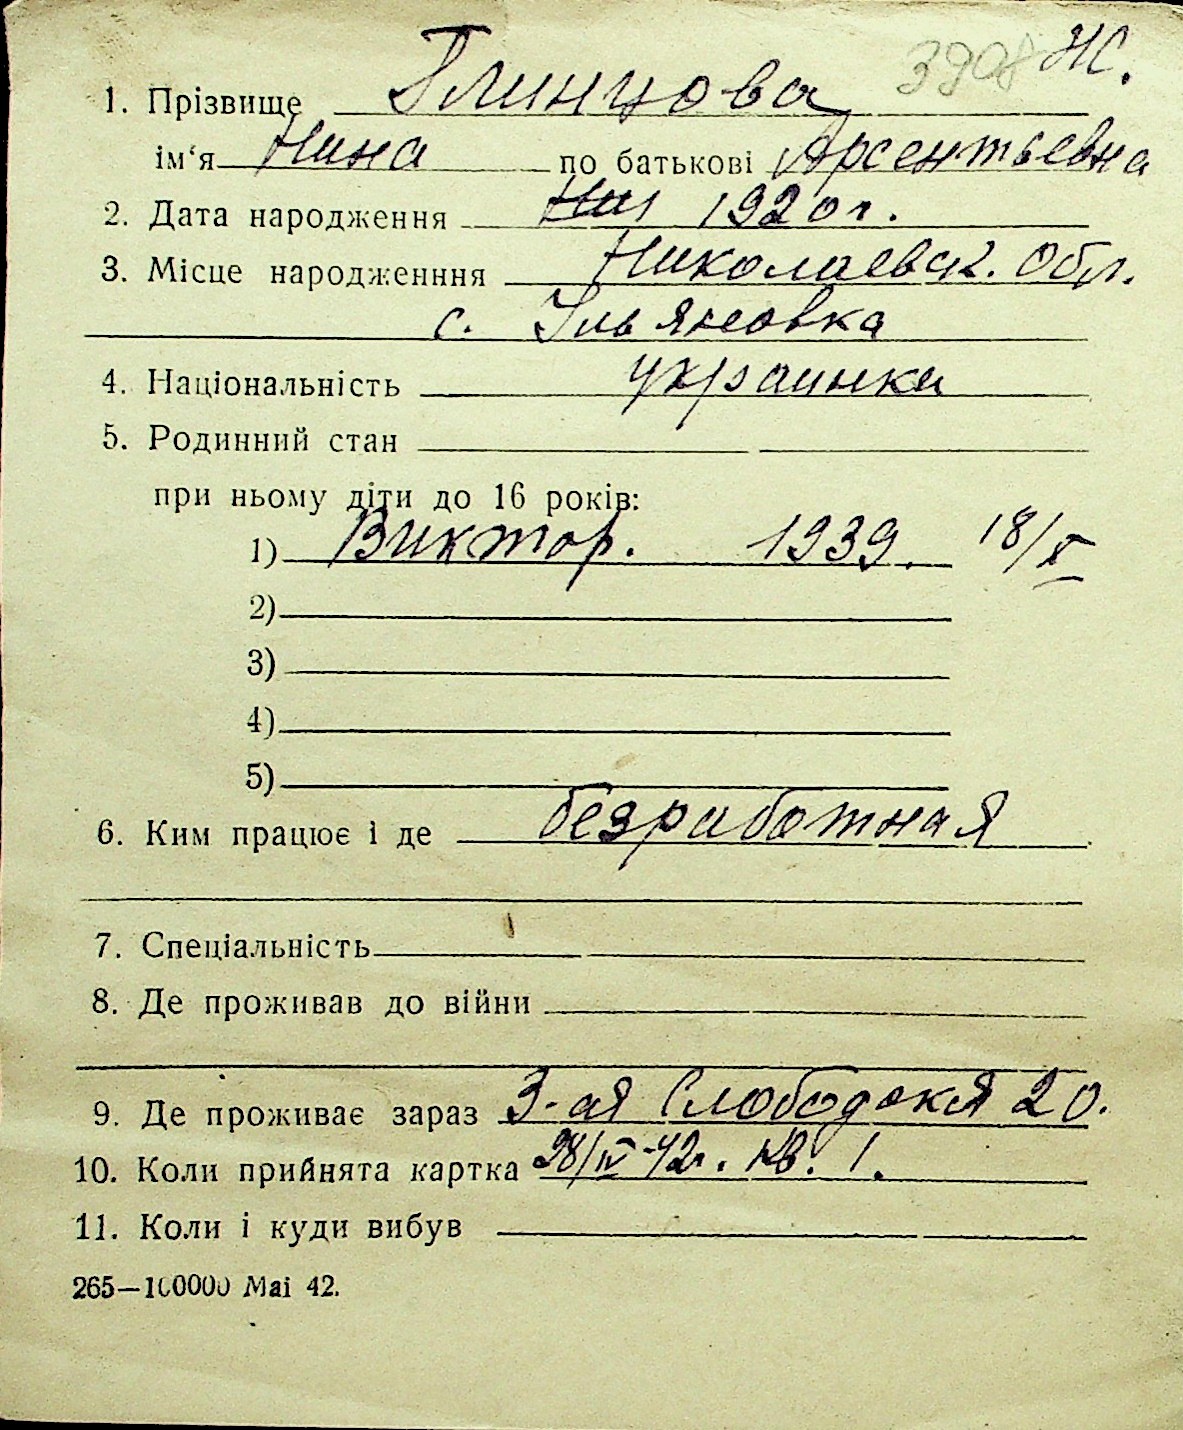 3908 Ж.
1. Прізвище Глинцова
ім‘я Нина по батькові Арсентьевна
2. Дата народження 1920 г.
3. Місце народженння Николаевск. Обл.
с. Ульяновка
4. Національність украинка
5. Родинний стан
при ньому діти до 16 років:
1) Виктор. 1939. 18/X
2)
3)
4)
5)
6. Ким працює і де безработная
7. Спеціальність
8. Де проживав до війни
9. Де проживає зараз 3-ая Слободская 20.
10. Коли прийнята картка 28/IV-42г. кв. 1.
11. Коли і куди вибув
265—100000 Mai 42.